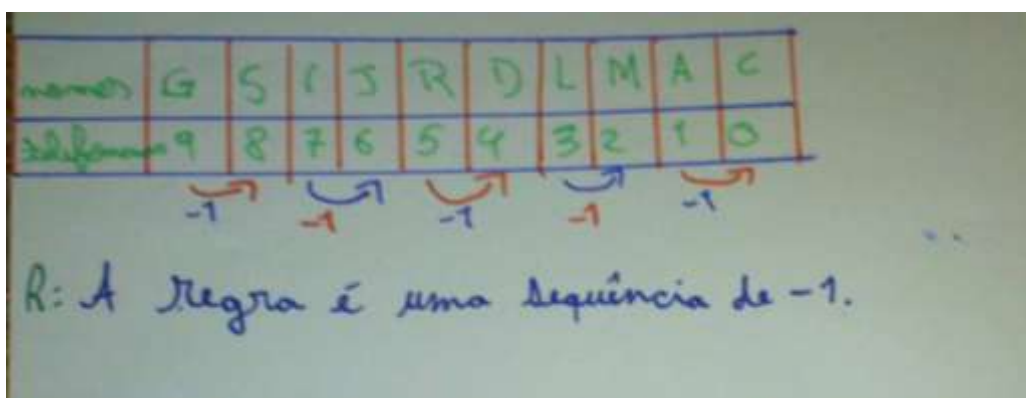 nomes G S I J R D L M A C
telefonemas 9 8 7 6 5 4 3 2 1 0
-1 -1 -1 -1 -1
R: A regra é uma sequência de -1.